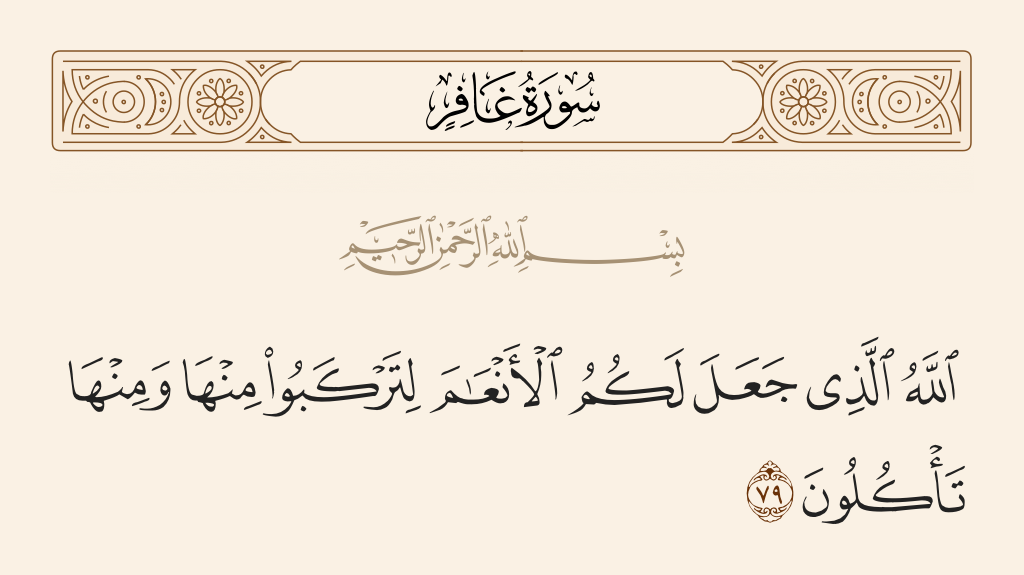 سُورَةُ غَافِرٍ
بِسْمِ ٱللَّهِ ٱلرَّحْمَٰنِ ٱلرَّحِيمِ
ٱللَّهُ ٱلَّذِى جَعَلَ لَكُمُ ٱلْأَنْعَٰمَ لِتَرْكَبُوا۟ مِنْهَا وَمِنْهَا
تَأْكُلُونَ ٧٩